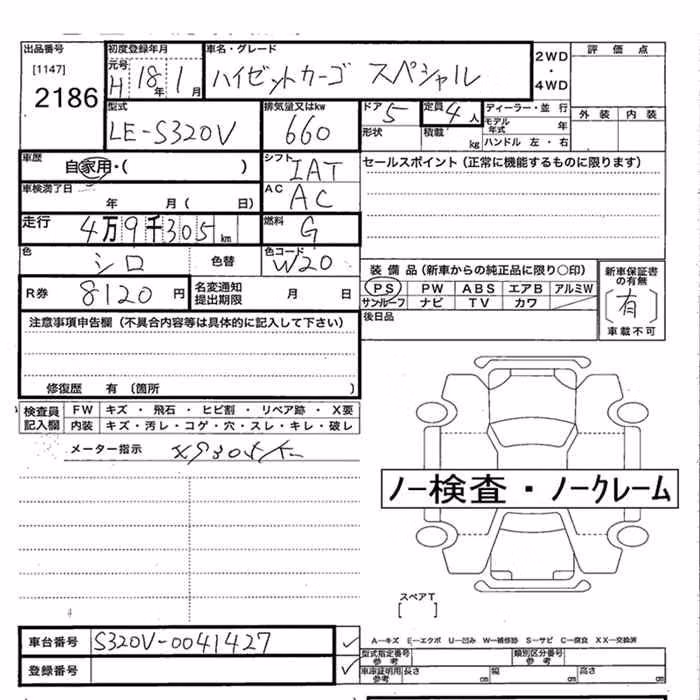 出品番号
[1147]
2186
初度登録年月
元号 H 18年 1月
車名・グレード
ハイゼットカーゴ スペシャル
2WD
・
4WD
評価点
外装 内装
型式
LE-S320V
排気量又はkw
660
ドア 5
形状
定員 4人
積載 kg
ディーラー・並行
モデル年式 年
ハンドル 左・右
車歴
自家用・( )
シフト
IAT
セールスポイント(正常に機能するものに限ります)
車検満了日
年 月( 日)
AC
AC
走行
4万9千305km
燃料
G
色
シロ
色替
色コード
W20
R券 8120円
名変通知
提出期限
月 日
装備品(新車からの純正品に限り○印)
PS PW ABS エアB アルミW
サンルーフ ナビ TV カワ
後日品
新車保証書
の有無
有
車載不可
注意事項申告欄(不具合内容等は具体的に記入して下さい)
修復歴 有(箇所 )
検査員
記入欄
FW キズ・飛石・ヒビ割・リペア跡・X要
内装 キズ・汚レ・コゲ・穴・スレ・キレ・破レ
メーター指示
ノー検査・ノークレーム
スペアT
[ ]
車台番号 S320V-0041427
登録番号
A−キズ E−エクボ U−凹み W−補修跡 S−サビ C−腐食 XX−交換済
型式指定番号
参考
類別区分番号
参考
車庫証明用
参考
長さ cm 幅 cm 高さ cm